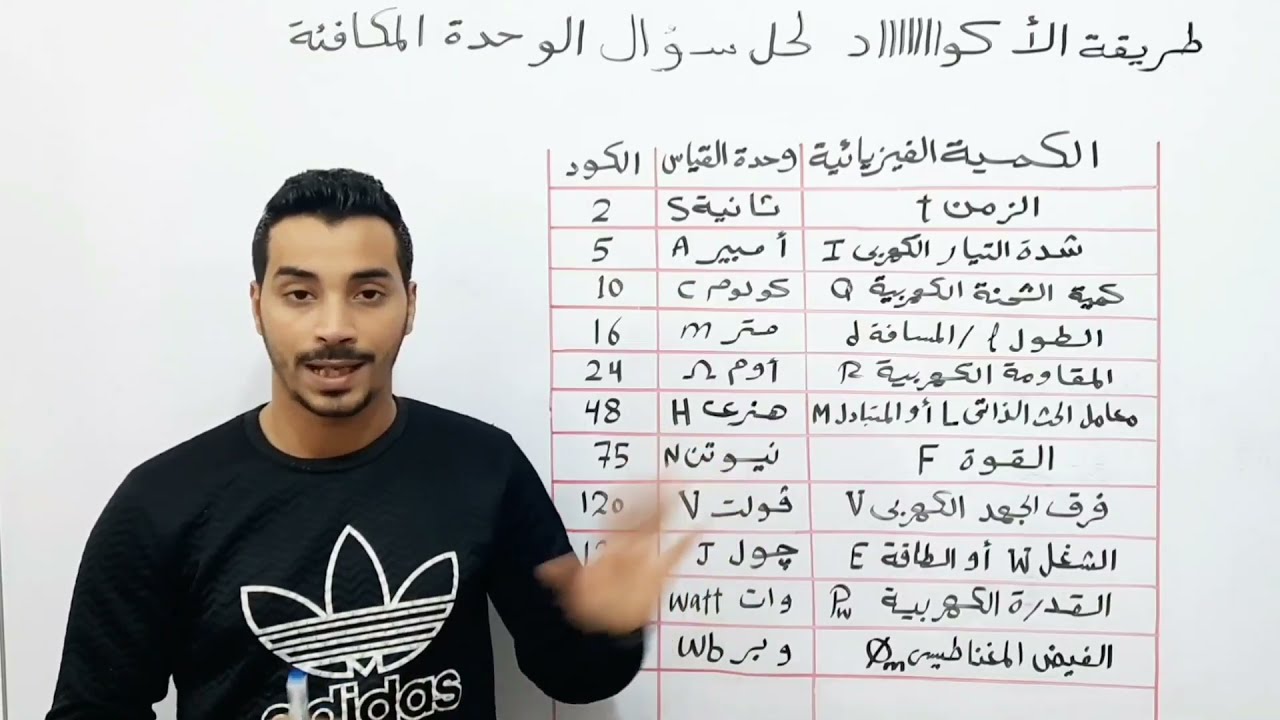 طريقة الأكواااااااد لحل سؤال الوحدة المكافئة
الكمية الفيزيائية وحدة القياس الكود
الزمن t ثانية S 2
شدة التيار الكهربى I أمبير A 5
كمية الشحنة الكهربية Q كولوم C 10
الطول l / المسافة d متر m 16
المقاومة الكهربية R أوم Ω 24
معامل الحث الذاتى L أو المتبادل M هنرى H 48
القوة F نيوتن N 75
فرق الجهد الكهربى V ڤولت V 120
الشغل W أو الطاقة E چول J
القدرة الكهربية Pw وات watt
الفيض المغناطيسى Øm وبر Wb
adidas